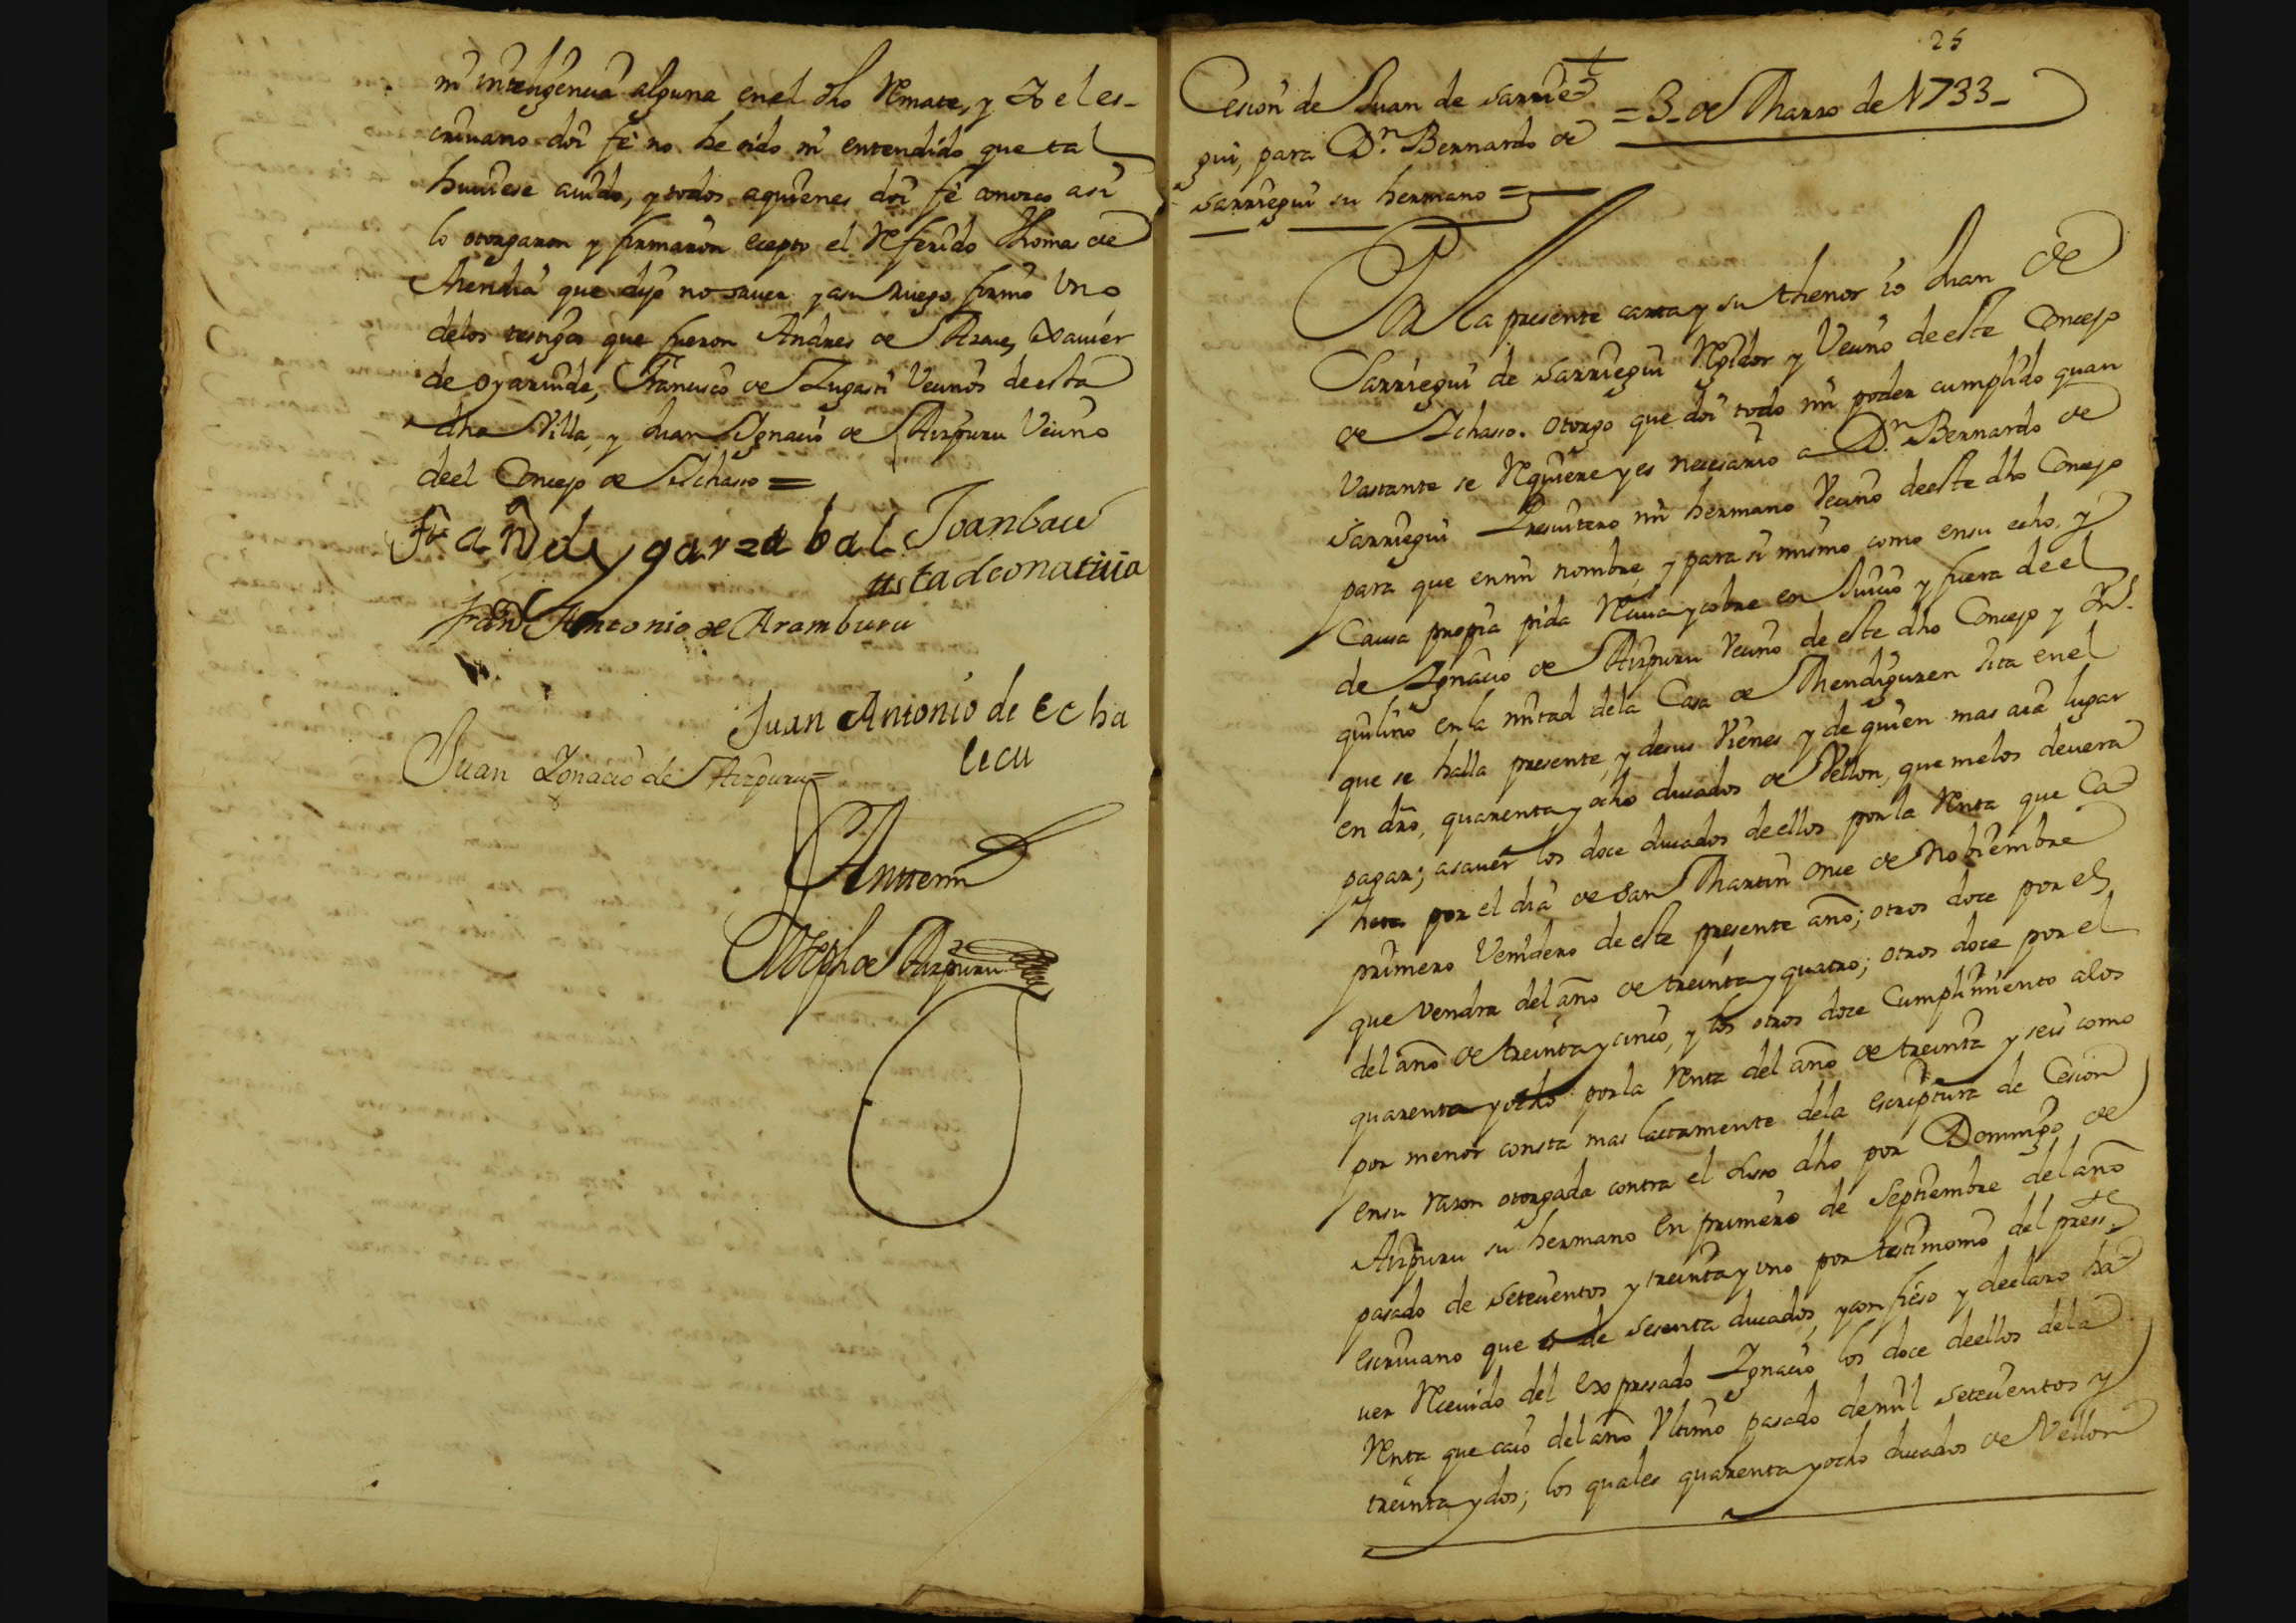 ni inteligencia alguna en el dho Remate, y Yo el es-
criuano doi fe no he oido ni entendido que tal
huuiese auido, y todos aquienes doi fe conozco asi
lo otorgaron y firmaron ecepto el Referido Thomas de
Mendia que dijo no sauer y asu Ruego firmo Vno
delos testigos que fueron Andres de Xauier
de Oyaruide, Francisco de Lugasti Vecinos de esta
dha Villa, y Juan Ignacio de Aizpuru Vecino
deel Concejo de Ichasso =
Fran de ygarzabal Joanbau
tistadeonativia
Fran Antonio de Aramburu
Juan Antonio de echa
lecu
Juan Ignacio de Aizpuru =
Antemi
Joseph de Aizpuru
25
Cesion de Juan de Sarrie
gui, para Dn. Bernardo de
Sarriegui su hermano =
= 3 de Marzo de 1733 -
Por la presente carta y su thenor io Juan de
Sarriegui de Sarriegui Rexidor y Vecino de este Concejo
de Ichasso. otorgo que doi todo mi poder cumplido quan
Vastante se Requiere y es necesario a Dn. Bernardo de
Sarriegui Presuitero mi hermano Vecino de este dho Concejo
para que en mi nombre, y para si mismo como en su echo, y
Causa propia pida Reciua y cobre en Juicio y fuera de el
de Ignacio de Aizpuru Vecino de este dho Concejo y In-
quilino en la mitad dela Casa de Mendiguren sita en el
que se halla presente, y de sus Vienes y de quien mas aia lugar
en dro, quarenta y ocho ducados de Vellon, que melos deuera
pagar; asauer los doce ducados de ellos por la Renta que Ca
hera por el dia de San Martin once de Nobiembre
primero Venidero de este presente año; otros doce por el
que vendra del año de treinta y quatro; otros doce por el
del año de treinta y cinco, y los otros doce Cumplimiento alos
quarenta y ocho por la Renta del año de treinta y seis como
por menor consta mas lactamente dela escriptura de Cesion
en su razon otorgada contra el suso dho por Domingo de
Aizpuru su hermano en primero de Septiembre del año
pasado de setecientos y treinta y uno por testimonio del presste
escriuano que es de sesenta ducados, y confieso y declaro ha
uer Receuido del expresado Ignacio los doce deellos dela
Renta que caio del año Vltimo pasado de mil setecientos y
treinta y dos; los quales quarenta y ocho ducados de Vellon